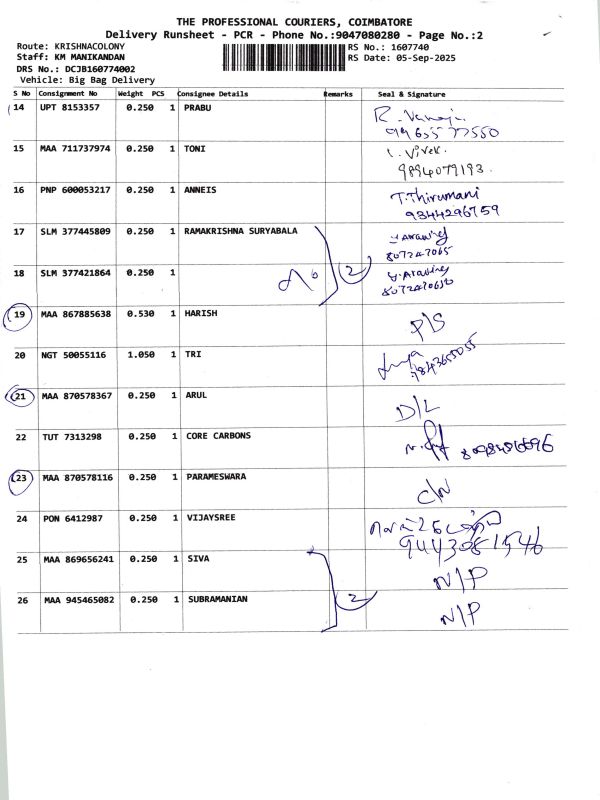 THE PROFESSIONAL COURIERS, COIMBATORE
Delivery Runsheet - PCR - Phone No.:9047080280 - Page No.:2
Route: KRISHNACOLONY RS No.: 1607740
Staff: KM MANIKANDAN RS Date: 05-Sep-2025
DRS No.: DCJB160774002
Vehicle: Big Bag Delivery
S No Consignment No Weight PCS Consignee Details Remarks Seal & Signature
14 UPT 8153357 0.250 1 PRABU
15 MAA 711737974 0.250 1 TONI Vivek.
9894079193.
16 PNP 600053217 0.250 1 ANNEIS T.Thirumani
9344296759
17 SLM 377445809 0.250 1 RAMAKRISHNA SURYABALA
807247065
18 SLM 377421864 0.250 1 2
19 MAA 867885638 0.530 1 HARISH P/S
20 NGT 50055116 1.050 1 TRI
21 MAA 870578367 0.250 1 ARUL D/L
22 TUT 7313298 0.250 1 CORE CARBONS
23 MAA 870578116 0.250 1 PARAMESWARA C/N
24 PON 6412987 0.250 1 VIJAYSREE
25 MAA 869656241 0.250 1 SIVA N/P
26 MAA 945465082 0.250 1 SUBRAMANIAN 2 N/P